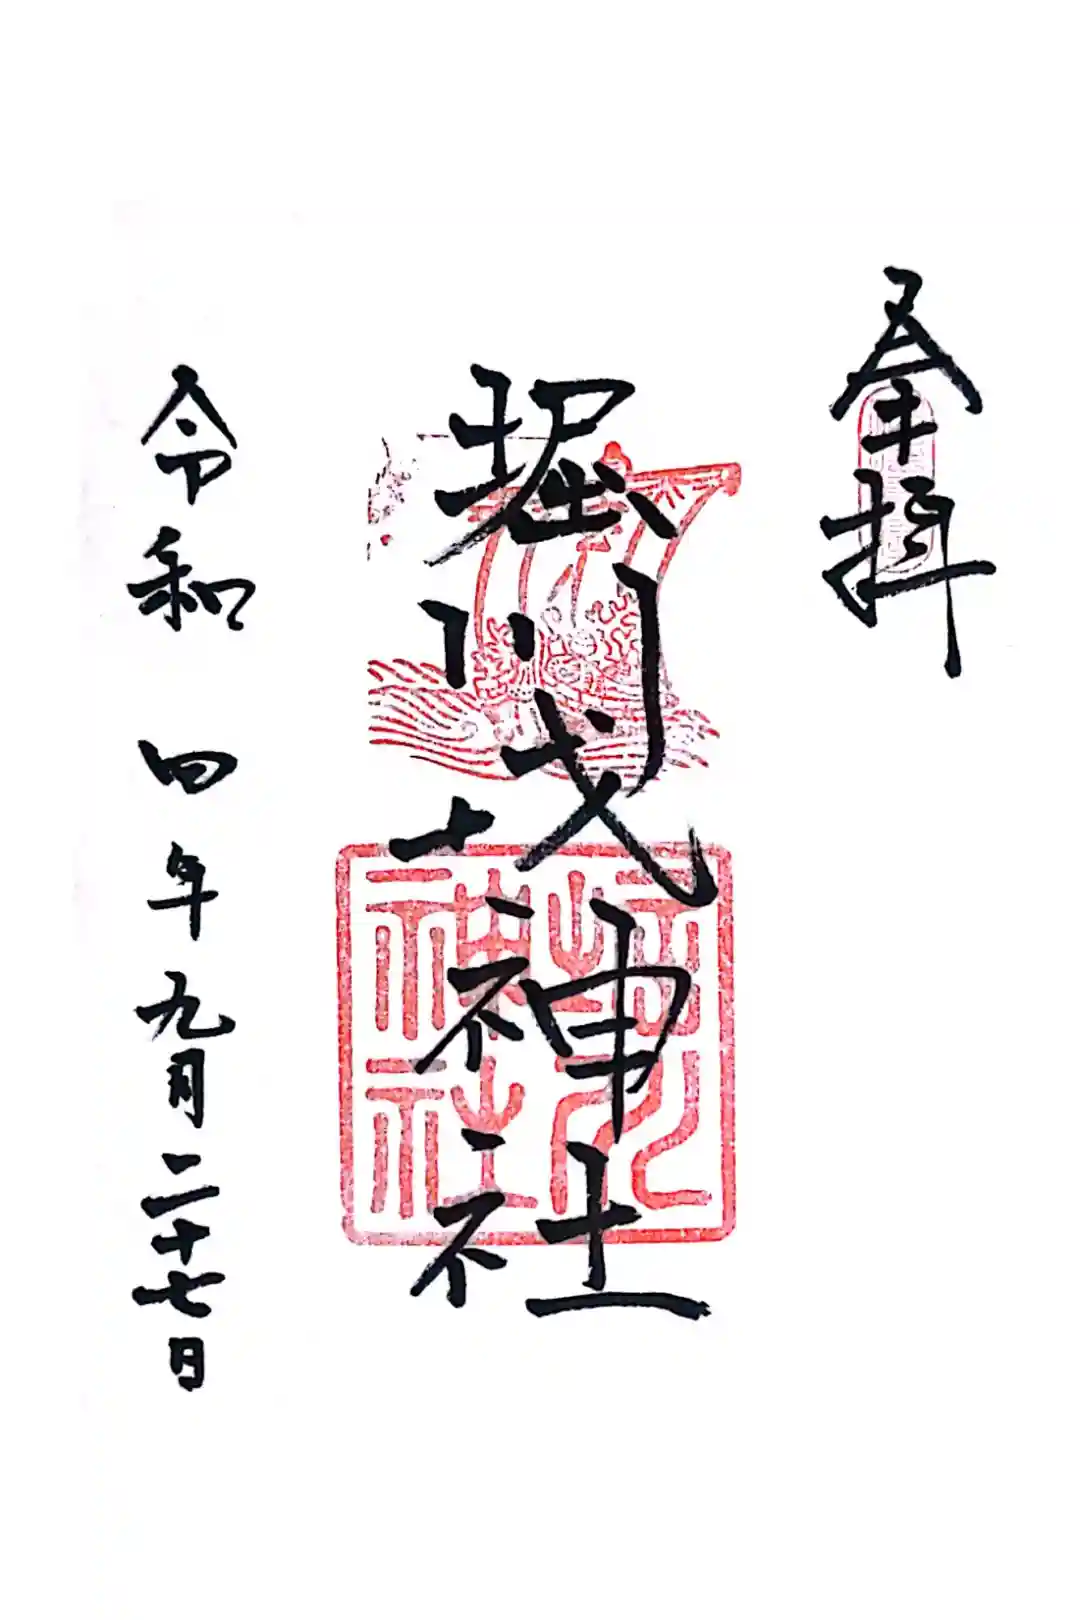 奉拝
堀川戎神社
堀川
神社
令和四年九月二十七日